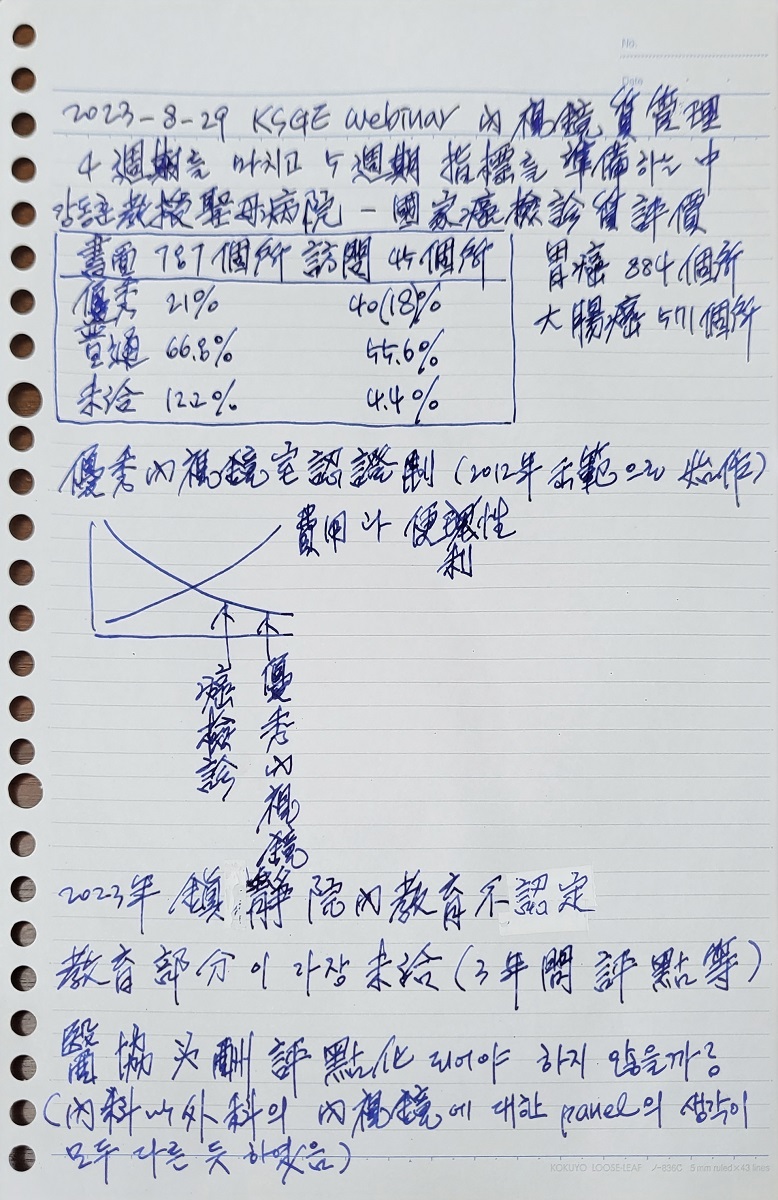 No.
Date
2023-8-29 KSGE Webinar 內視鏡 質管理
4週期를 마치고 5週期 指標를 準備하는 中
강동훈敎授 聖母病院 - 國家癌檢診質評價
書面 787個所 訪問 45個所
優秀 21% 40(18)%
普通 66.8% 55.6%
未洽 12.2% 4.4%
胃癌 884個所
大腸癌 571個所
優秀內視鏡室認證制 (2012年 示範으로 始作)
費用과 便理性
利
癌檢診
優秀內視鏡
2023年 鎭靜 院內敎育 不認定
敎育部分이 가장 未洽 (3年間 評點等)
醫協 评點化 되어야 하지 않을까?
(內科와 外科의 內視鏡에 대한 panel의 생각이
모두 다른 듯 하였음)
KOKUYO LOOSE-LEAF ノ-836C 5 mm ruled×43 lines